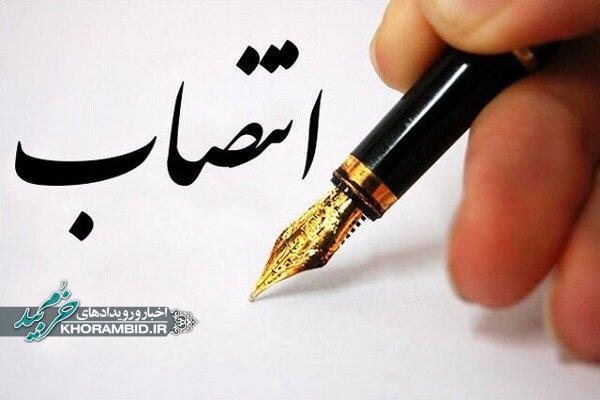 انتصاب
اخبار و رویدادهای
خرمبید
KHORAMBID.IR